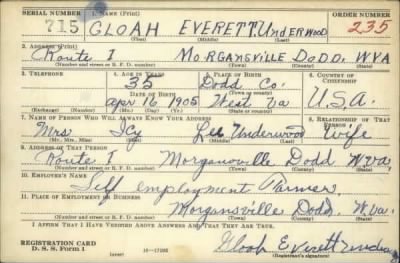 SERIAL NUMBER 1. NAME (Print) ORDER NUMBER
715 GLOAH EVERETT UNDERWOOD 235
(First) (Middle) (Last)
2. ADDRESS (Print)
Route 1 MORGANSVILLE DODD. W.VA
(Number and street or R. F. D. number) (Town) (County) (State)
3. TELEPHONE 4. AGE IN YEARS 5. PLACE OF BIRTH 6. COUNTRY OF CITIZENSHIP
35 Dodd Co.
DATE OF BIRTH (Town or county)
Apr 16 1905 West Va U.S.A.
(Exchange) (Number) (Mo.) (Day) (Yr.) (State or country)
7. NAME OF PERSON WHO WILL ALWAYS KNOW YOUR ADDRESS 8. RELATIONSHIP OF THAT PERSON
Mrs Icy Lee Underwood Wife
(Mr., Mrs., Miss) (First) (Middle) (Last)
9. ADDRESS OF THAT PERSON
Route 1 Morgansville Dodd W.Va,
(Number and street or R. F. D. number) (Town) (County) (State)
10. EMPLOYER'S NAME
Self employment Farmer,
11. PLACE OF EMPLOYMENT OR BUSINESS
Morgansville Dodd, W.Va.
(Number and street or R. F. D. number) (Town) (County) (State)
I AFFIRM THAT I HAVE VERIFIED ABOVE ANSWERS AND THAT THEY ARE TRUE.
REGISTRATION CARD
D. S. S. Form 1 (over) 16-17105 Gloah Everett Underwood
(Registrant's signature)